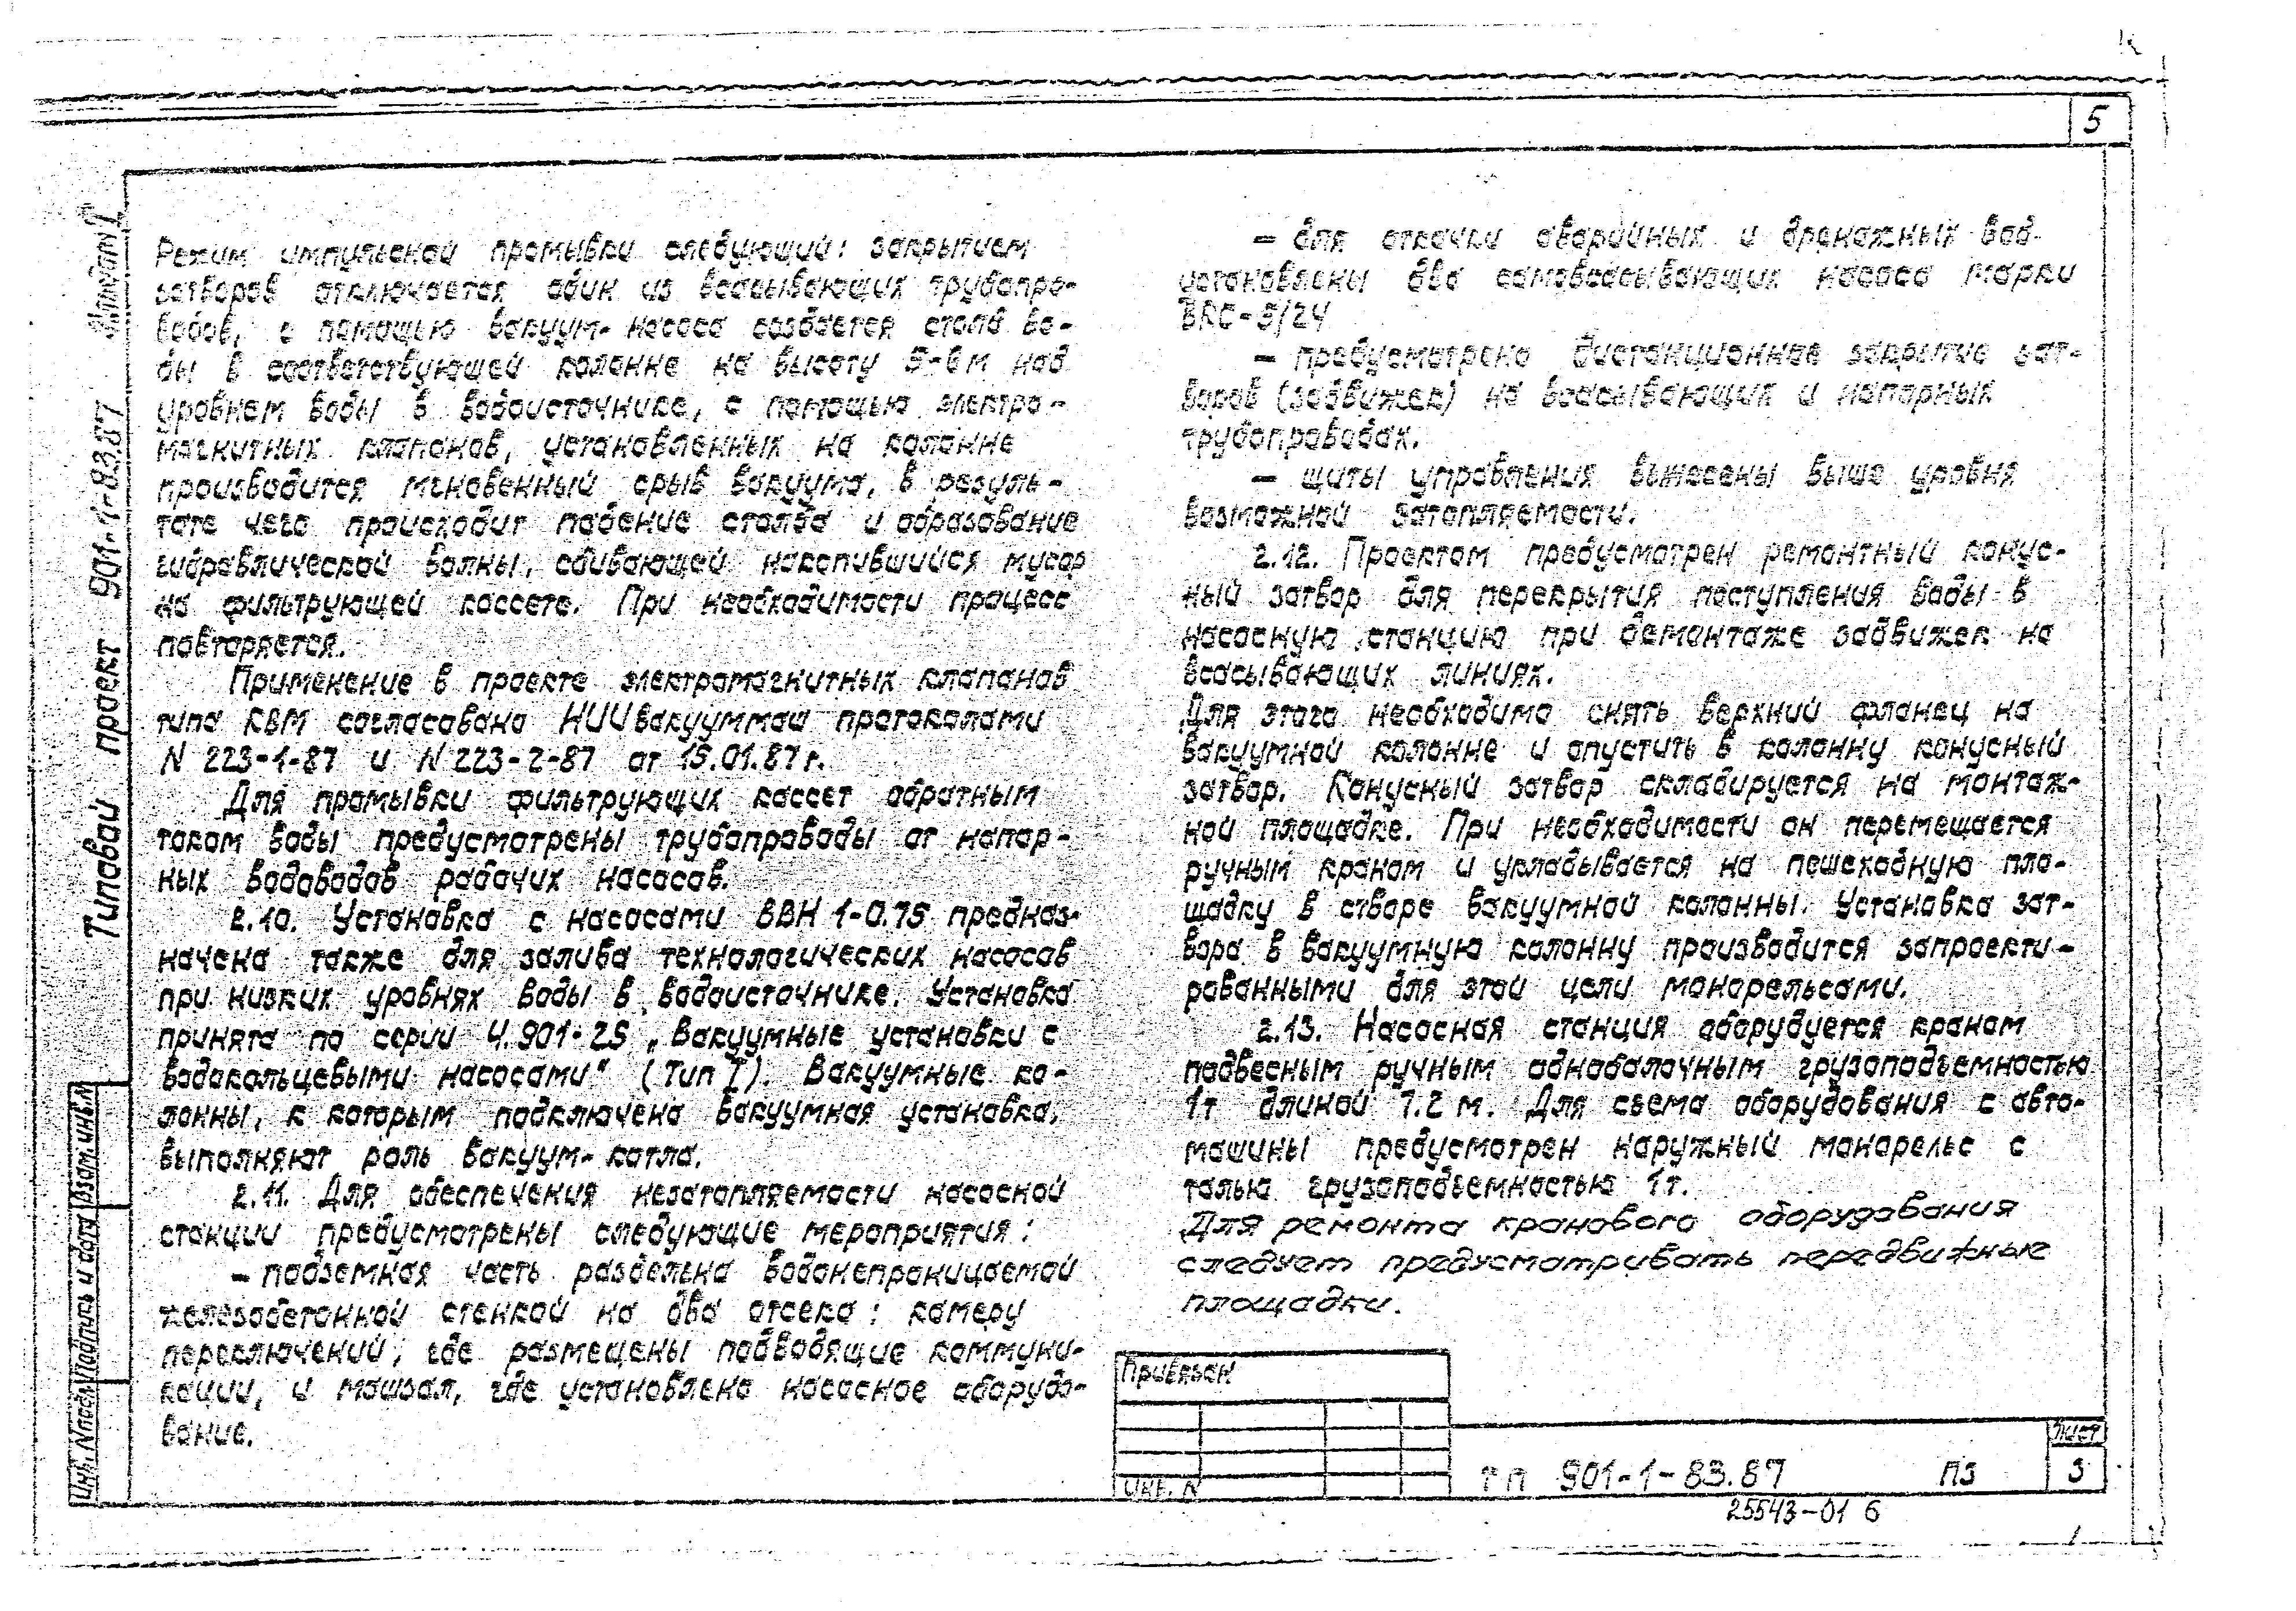 5
Режим импульсной промывки следующий: закрытием
затворов отключается один из всасывающих трубопро-
водов, с помощью вакуум-насоса создается столб во-
ды в соответствующей колонне на высоту 5-6 м над
уровнем воды в водоисточнике, с помощью электро-
магнитных клапанов, установленных на колонне
производится мгновенный срыв вакуума, в резуль-
тате чего происходит падение столба и образование
гидравлической волны, сбивающей накопившийся мусор
на фильтрующей кассете. При необходимости процесс
повторяется.
Применение в проекте электромагнитных клапанов
типа КВМ согласовано НИИвакууммаш протоколами
N 223-1-87 и N 223-2-87 от 15.01.87 г.
Для промывки фильтрующих кассет обратным
током воды предусмотрены трубопроводы от напор-
ных водоводов рабочих насосов.
2.10. Установка с насосами ВВН 1-0.75 предназ-
начена также для залива технологических насосов
при низких уровнях воды в водоисточнике. Установка
принята по серии 4.901-25 „Вакуумные установки с
водокольцевыми насосами" (Тип I). Вакуумные ко-
лонны, к которым подключена вакуумная установка,
выполняют роль вакуум-котла.
2.11. Для обеспечения незатопляемости насосной
станции предусмотрены следующие мероприятия:
- подземная часть разделена водонепроницаемой
железобетонной стенкой на два отсека: камеру
переключений, где размещены подводящие коммуни-
кации, и машзал, где установлено насосное оборудо-
вание.
- для откачки аварийных и дренажных вод
установлены два самовсасывающих насоса марки
ВКС-5/24
- предусмотрено дистанционное закрытие зат-
воров (задвижек) на всасывающих и напорных
трубопроводах.
- щиты управления вынесены выше уровня
возможной затопляемости.
2.12. Проектом предусмотрен ремонтный конус-
ный затвор для перекрытия поступления воды в
насосную станцию при демонтаже задвижек на
всасывающих линиях.
Для этого необходимо снять верхний фланец на
вакуумной колонне и опустить в колонну конусный
затвор. Конусный затвор складируется на монтаж-
ной площадке. При необходимости он перемещается
ручным краном и укладывается на пешеходную пло-
щадку в створе вакуумной колонны. Установка зат-
вора в вакуумную колонну производится запроекти-
рованными для этой цели монорельсами.
2.13. Насосная станция оборудуется краном
подвесным ручным однобалочным грузоподъемностью
1т длиной 7.2 м. Для съема оборудования с авто-
машины предусмотрен наружный монорельс с
талью грузоподъемностью 1т.
Для ремонта кранового оборудования
следует предусматривать передвижные
площадки.
Типовой проект 901-1-83.87 Альбом 1
Инв. N подл. Подпись и дата Взам. инв. N
Привязан
Инв. N
ТП 901-1-83.87 ПЗ
Лист
3
25543-01 6